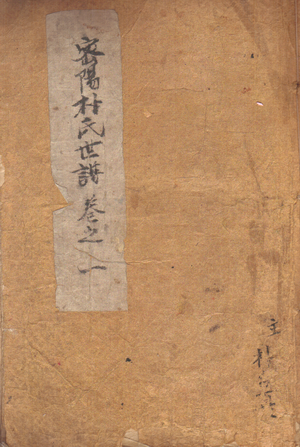 密陽朴氏世譜 卷之一
主 朴